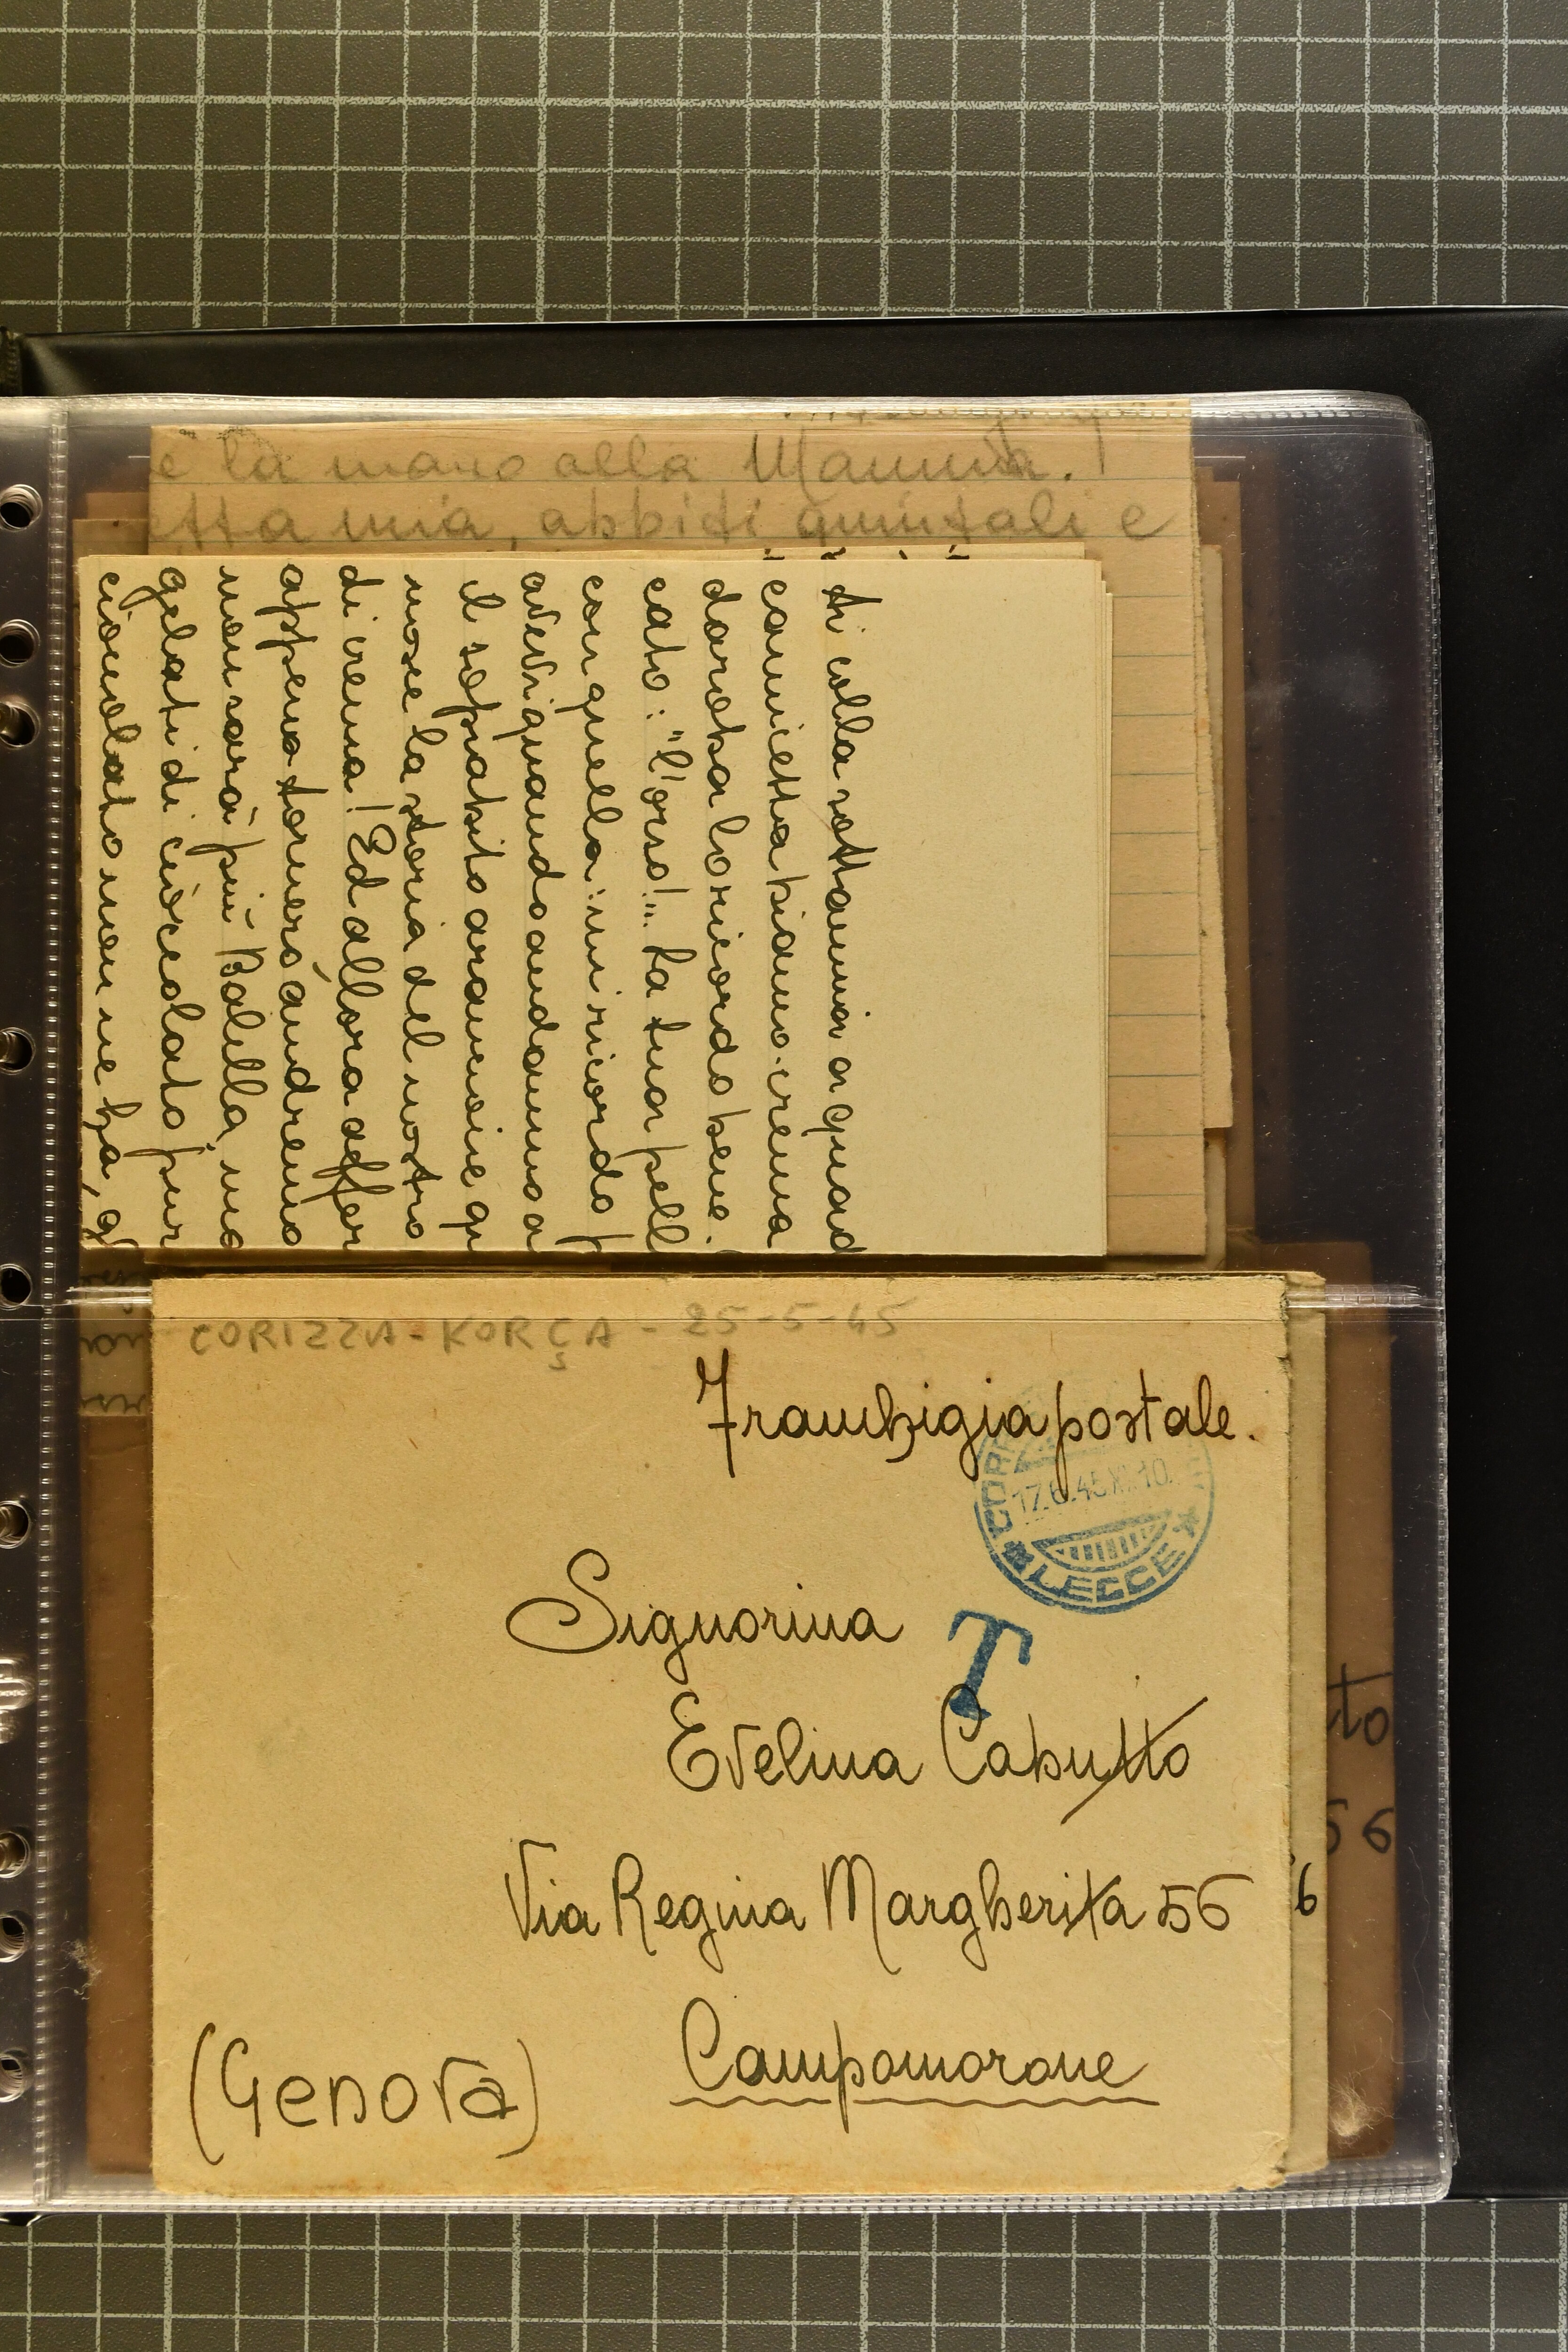 e la mano alla Mamma.
etta mia, abbiti quintali e
ti colla sottanina a quad
camicetta bianco-crema
daroba lo ricordo bene.
cato: "l'orso!... La tua pell
con quella: mi ricordo p
avevi quando andammo a
il sopabito arancione qu
nose la storia del nostro
di crema! Ed allora affer
appena tornerò andremo
non sarà più Balilla, ma
gelati di ciòccolato pur
cioccolato non ne ha, g
CORIZZA - KORÇA - 25-5-45
Franchigia postale.
17.6.45 XI 10
LECCE
Signorina
T
Evelina Cabutto
Via Regina Margherita 56
Campomorone
(Genova)
to
56
6